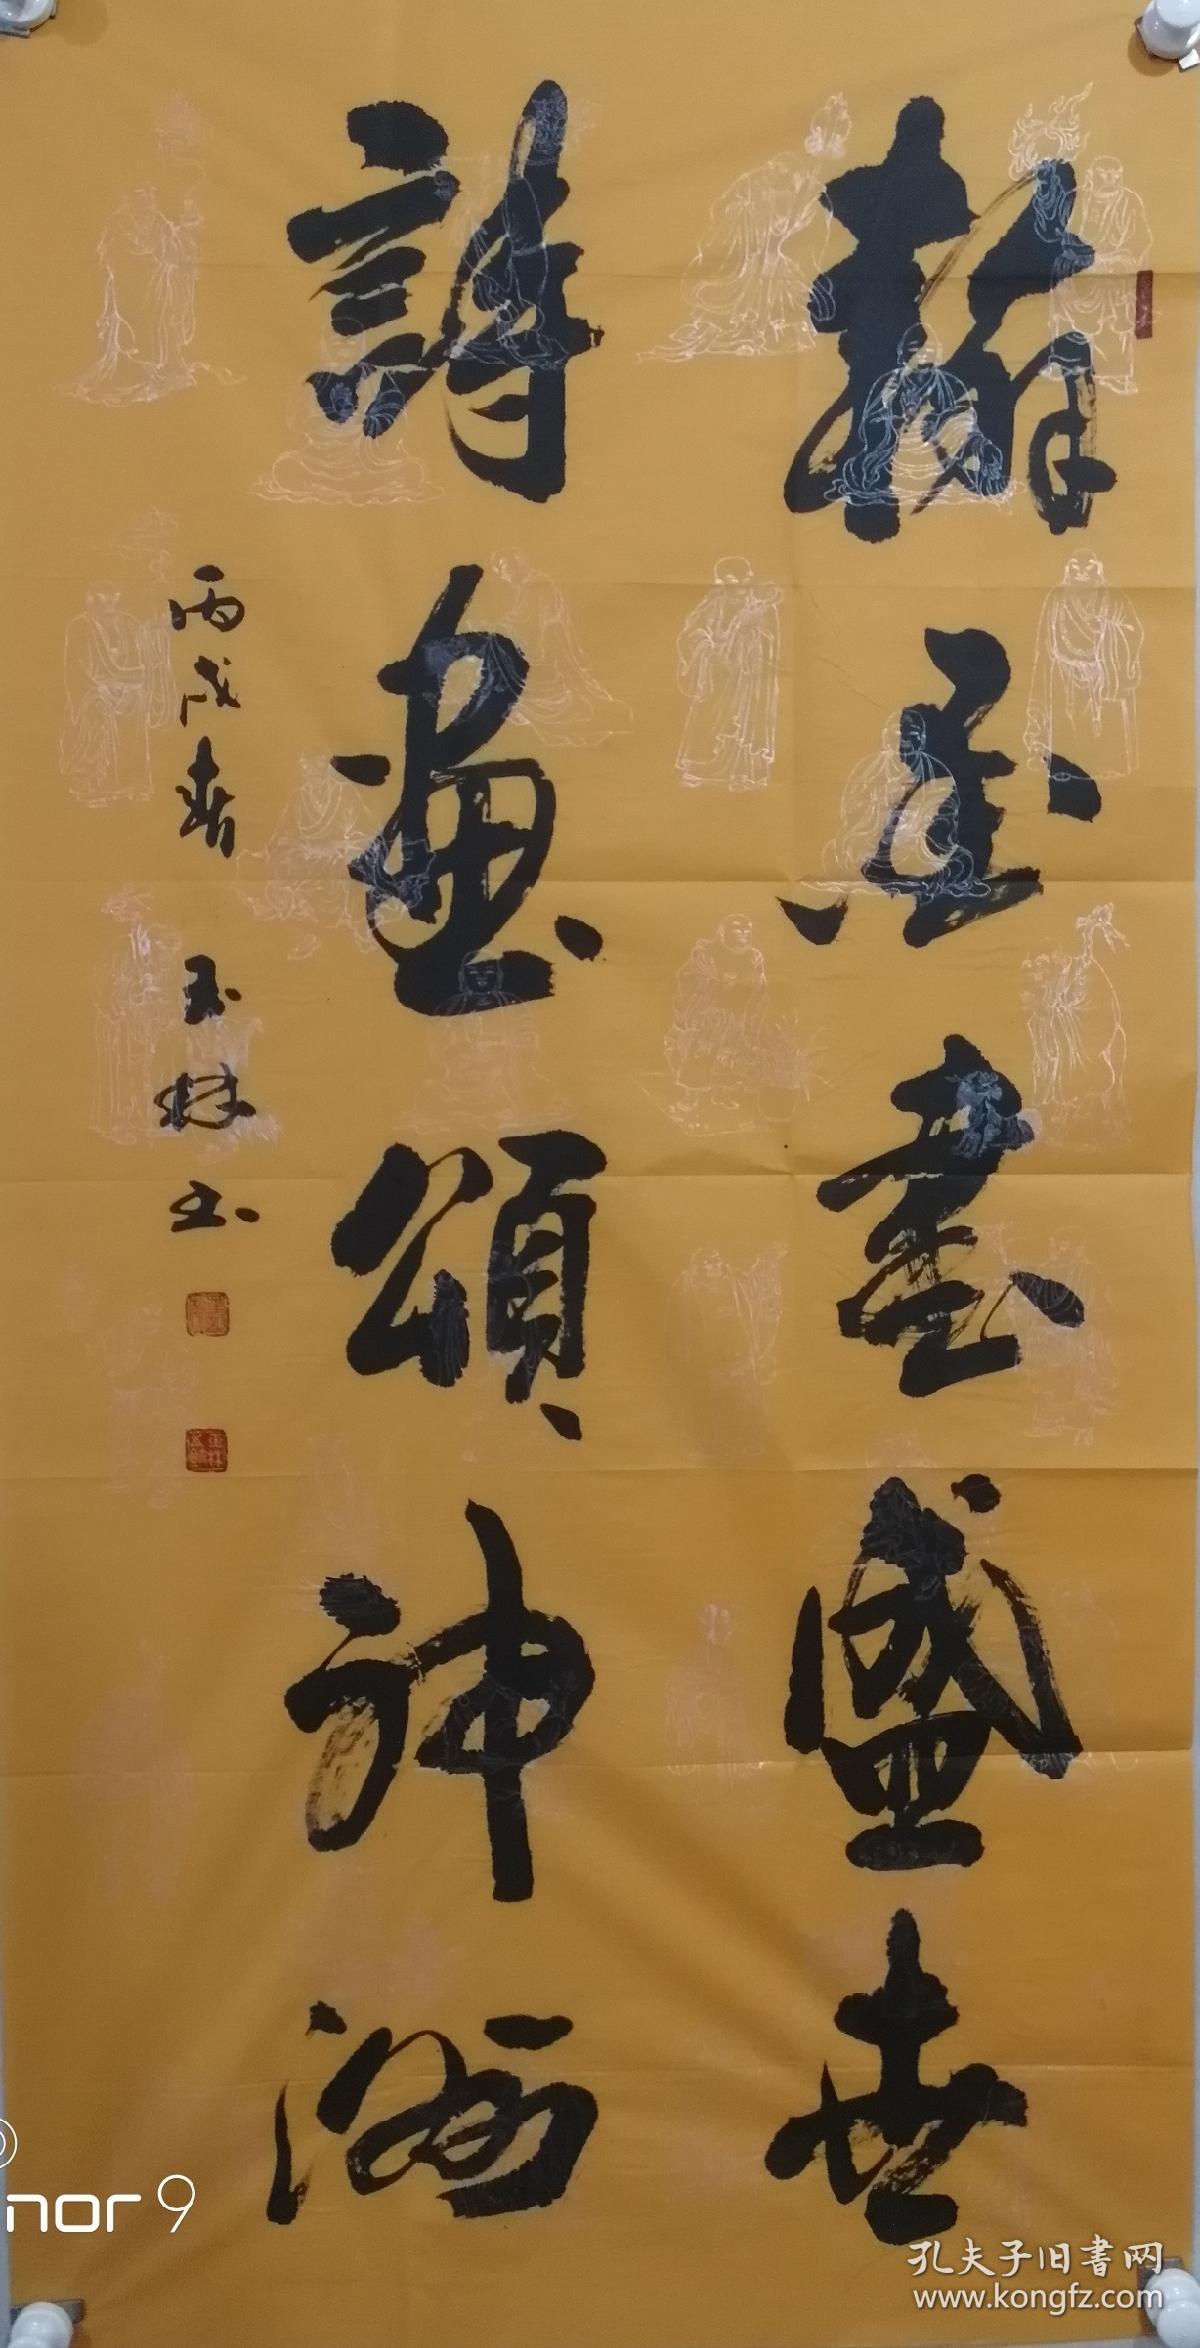 翰墨書盛世
詩畫頌神洲
丙戌春 玉林书
nor 9
孔夫子旧書网
www.kongfz.com